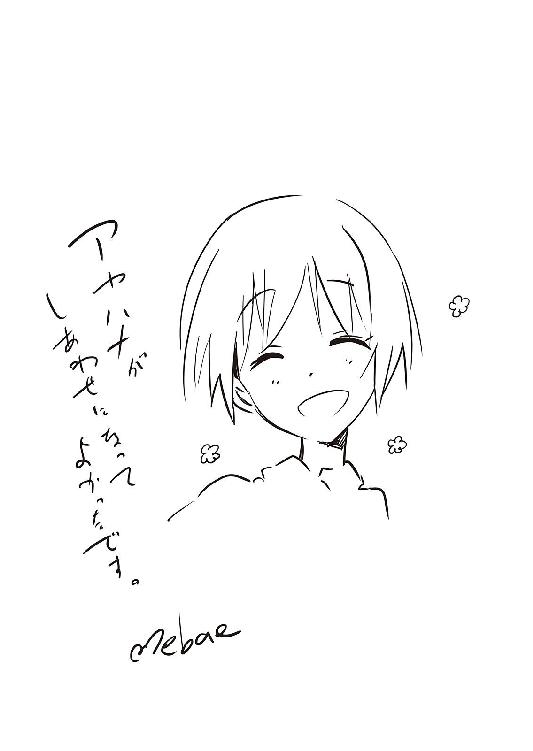 アヤハナが
しあわせになって
よかったです。
mebae